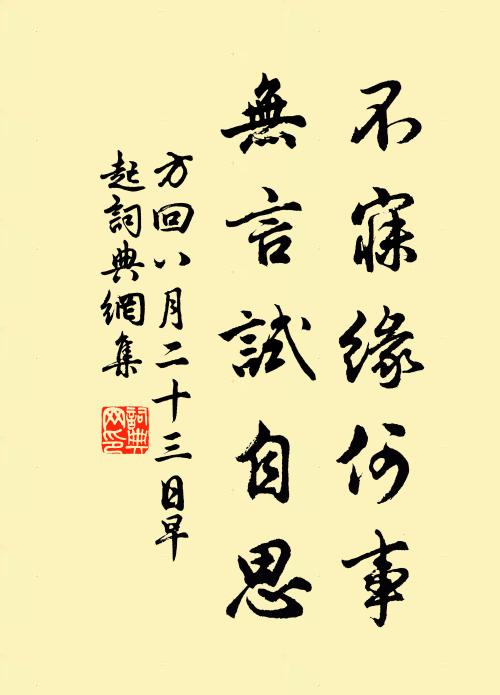 不寐緣何事
無言試自思
方回八月二十三日早
起詞典網集
詞典
网印